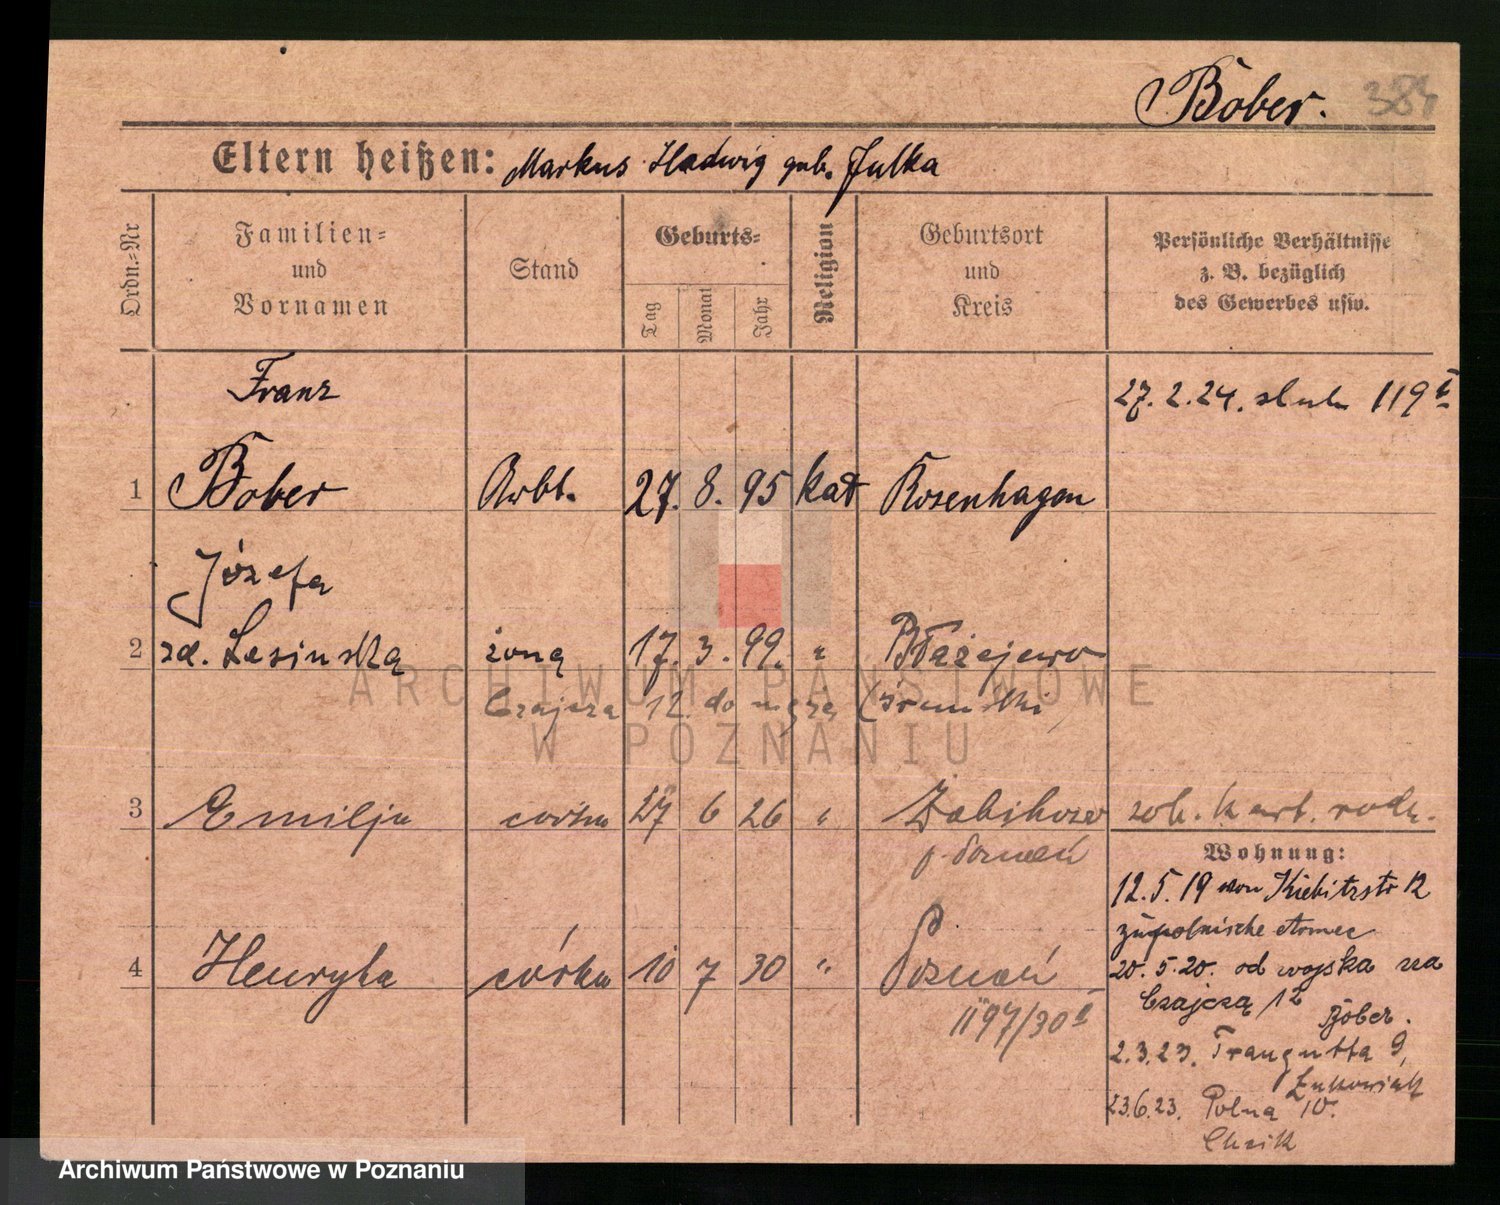 Bober. 384
Eltern heißen: Markus Hedwig geb. Julka
Ordn.-Nr
Familien-
und
Vornamen
Stand
Geburts-
Tag
Monat
Jahr
Religion
Geburtsort
und
Kreis
Persönliche Verhältnisse
z. B. bezüglich
des Gewerbes usw.
Franz
27. 2. 24. ślub 119
1 Bober Arbt. 27. 8. 95 kat Rosenhagen
Józefa
2 zd. Lesińska żona 17. 3. 99. " Błażejewo
Czajcza 12 do męża (Śrem
ARCHIWUM PAŃSTWOWE
W POZNANIU
3 Emilja córka 27 6 26 " Żabikowo zob. kart. rodz.
p. Poznań
Wohnung:
12. 5. 19 von Kiebitzstr 12
zur polnische Armee
4 Henryka córka 10 7 30 " Poznań
20. 5. 20. od wojska na
Czajczą 12
Bober.
1197/30
2. 3. 23. Traugutta 9,
Łukowiak
23. 6. 23. Polna 10.
Archiwum Państwowe w Poznaniu